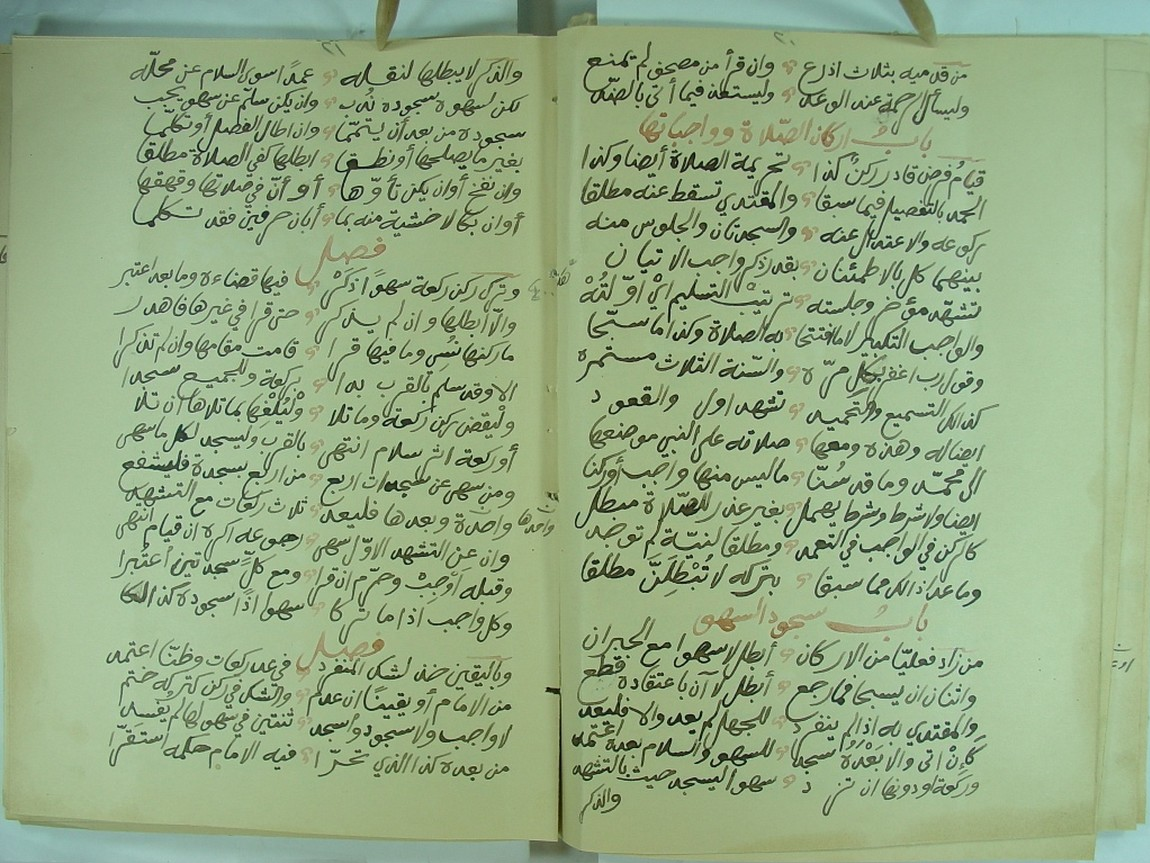 من قدميه بثلاث اذرع وان قرأ من مصحف لم تمنع
وليسأل الرحمة عند الوعد وليستعذ فيما أتى بالضد
باب اركان الصلاة وواجباتها
قيام فرض قادر ركن كذا تحريمة الصلاة أيضا وكذا
الحمد بالتفصيل فيما سبقا والمقتدي تسقط عنه مطلقا
ركوعه والاعتدال عنه والسجدتان والجلوس منه
بينهما كل بالاطمئنان بقدر ذكر واجب الاتيان
تشهد مؤخر وجلسته ترتيب التسليم اي او لته
والواجب التكبير لا ما افتتحا به الصلاة وكذا ما سبحا
وقول رب اغفر بكل مرة والسنة الثلاث مستمرة
كذلك التسميع والتحميد تشهد اول والقعود
ايضا له وهذه ومعها صلاته على النبي موضعها
ال محمد وما قد سنا ما ليس منها واجب أو ركنا
ايضا ولا شرط وشرط يهمل بغير عذر للصلاة مبطل
كالركن في الواجب في التعمد ومطلقا لنية لم توجد
وما عدا ذلك مما سبقا بتركه لا تبطلن مطلقا
باب سجود السهو
من زاد فعليا من الاركان أبطل لا سهوا مع الجبران
واثنان ان يسبحا فما رجع أبطل لا آن باعتقاده قطع
والمقتدي به اذا لم ينفرد للجهل لم يعد والا فليعد
كإن اتى والا بعده سجد للسهو والسلام بعده اعتمد
وركعة او دونها ان تزد سهوا ليسجد حيث بالتشهد
والذكر
والذكر لا يبطلها لنقله عمدا سوى السلام عن محله
لكن لسهوه سجوده ندب وان يكن سلم عن سهو يجب
سجوده من بعد أن يتمما وان اطال الفصل أو تكلما
بغير ما يصلحها أو نطقا ابطلها كفي الصلاة مطلقا
وان نفخ أوان يكن تأوها أو أن في صلاتها وقهقها
أوان بكا لا خشية منه بما أبان حرفين فقد تكلما
فصل
وترك ركن ركعة سهوا ذكر فيها قضاءه وما بعد اعتبر
والا ابطلها وان لم يذكر حتى قرا في غيرها فاهدر
ما ركنها نسي وما فيها قرا قامت مقامها وان لم تذكرا
الا وقد سلم بالقرب بدا بركعة وللجميع سجدا
وليقض ركن ركعة وما تلا وليلغها بما تلاها ان تلا
أو ركعة اثر سلام انتهى بالقرب وليسجد لكل ما سهى
ومن سهى عن سجدات اربع من اربع بسجدة فليشفع
واحدة وبعدها فليعد ثلاث ركعات مع التشهد
وان عن التشهد الاول سهى رجوعه اكره ان قيام انتهى
وقبله أوجب وحرم ان قرا ومع كل سجدتين أعتبرا
وكل واجب اذا ما تركا سهوا اذا سجوده كذلكا
فصل
وباليقين خذ لشك المنفرد في عد ركعات وظنا اعتمد
من الامام أو يقينا ان عدم والشك في ركن كتركه ختم
لا واجب ولا سجود واسجد ثنتين في سهو لها لم يفسد
من بعده كذا الذي تحرا فيه الامام حكمه استقرا